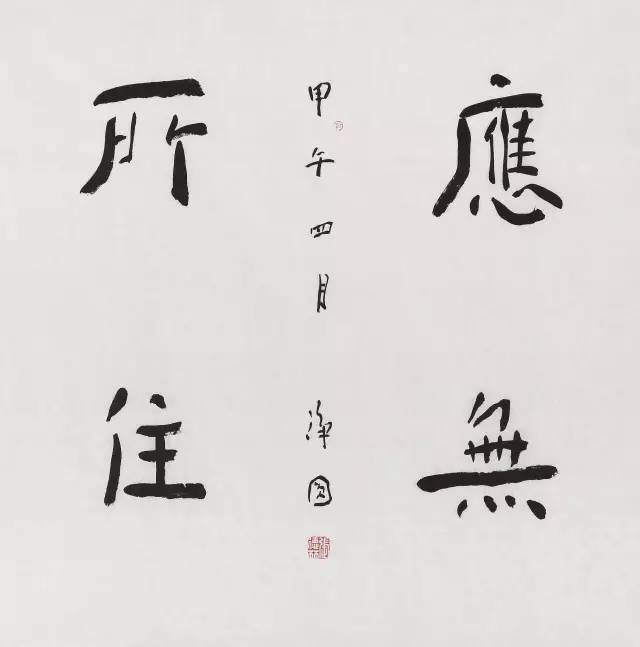 應無
甲午四月 淨圓
所住